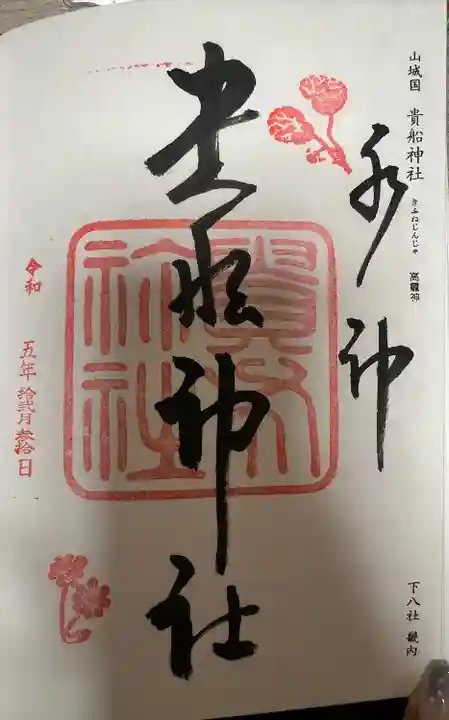 山城国 貴船神社 高龗神
きふねじんじゃ
下八社 畿内
水神
貴船神社
貴船神社
令和 五年 拾弐月 参拾日